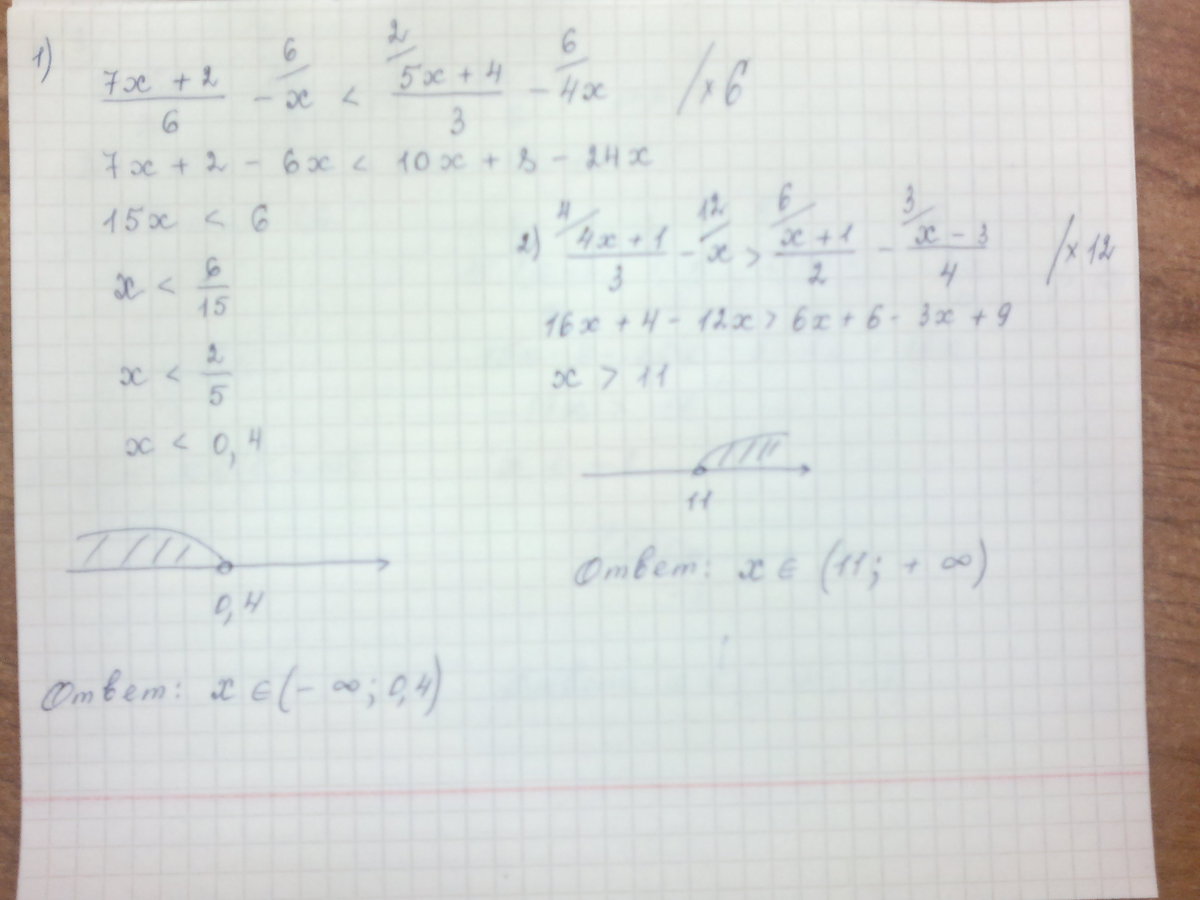 1) (7x + 2)/6 - 6/ x < 2/ (5x + 4)/3 - 6/ 4x /×6
7x + 2 - 6x < 10x + 8 - 24x
15x < 6
x < 6/15
x < 2/5
x < 0,4
0,4
Ответ: x ∈ (- ∞; 0,4)
2) 4/ (4x + 1)/3 - 12/ x > 6/ (x + 1)/2 - 3/ (x - 3)/4 /×12
16x + 4 - 12x > 6x + 6 - 3x + 9
x > 11
11
Ответ: x ∈ (11; + ∞)